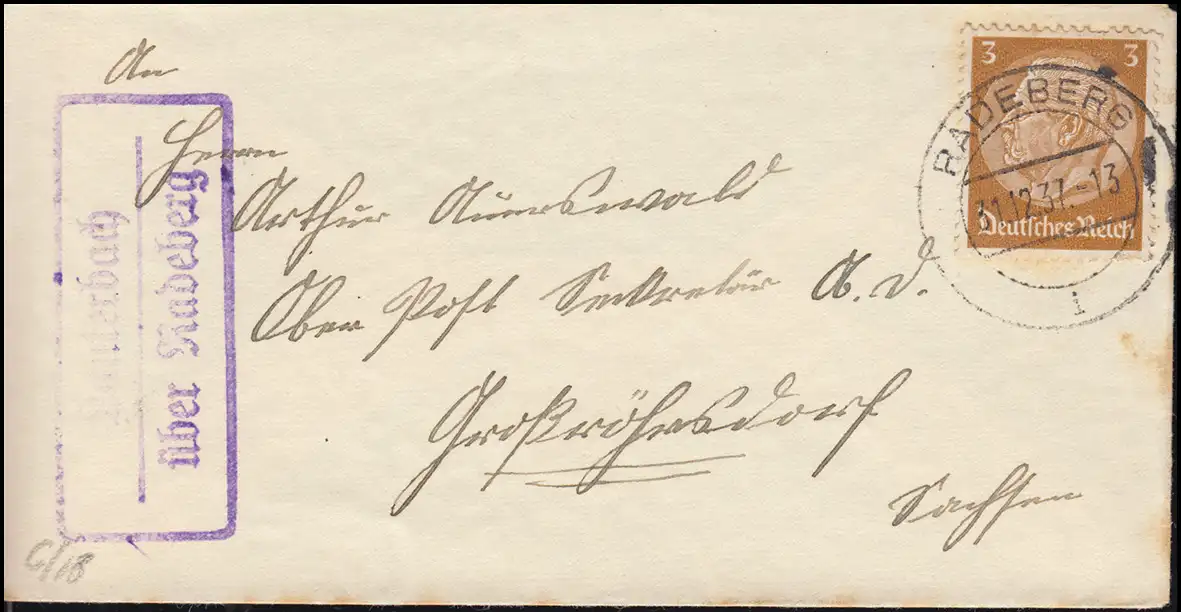 An
Herrn
Arthur Auerswald
Ober Post Sekretär A. D.
Großröhrsdorf
Sachsen
Lauterbach
über Radeberg
3 3
Deutsches Reich
RADEBERG
31.12.37.-13
1